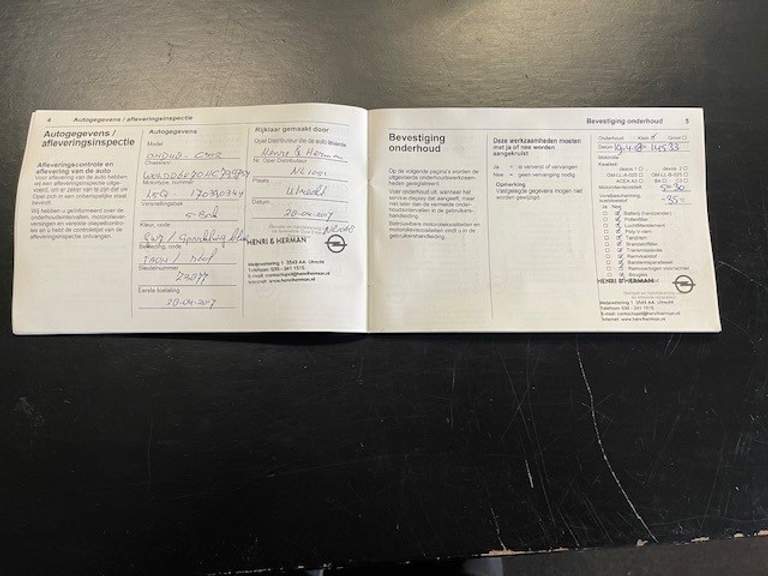 4
Autogegevens / afleveringsinspectie
Autogegevens /
afleveringsinspectie
Afleveringscontrole en
aflevering van de auto
Voor aflevering van de auto hebben
wij een afleveringsinspectie uitge-
voerd, om er zeker van te zijn dat uw
Opel zich in een onberispelijke staat
bevindt.
Wij hebben u geïnformeerd over de
onderhoudsintervallen, motoroliever-
versingen en vereiste oliepeilcontro-
les en u hebt de controlelijst van de
afleveringsinspectie ontvangen.
Autogegevens
Model
Chassisnr.
Motortype, nummer
Versnellingsbak
5-Bak
Kleur, code
Bekleding, code
Sleutelnummer
Eerste toelating
28-04-2017
Rijklaar gemaakt door
Opel Distributeur die de auto afleverde
Henri & Herman
Nr. Opel Distributeur
NL1001
Plaats
Utrecht
Datum
28-04-2017
HENRI & HERMAN
3543 AA Utrecht
Telefoon: 030 - 241 1515
Internet: www.henriherman.nl
Bevestiging onderhoud
5
Bevestiging
onderhoud
Op de volgende pagina's worden de
uitgevoerde onderhoudswerkzaam-
heden geregistreerd.
Voer onderhoud uit, wanneer het
service display dat aangeeft, maar
niet later dan de vermelde onder-
houdsintervallen in de gebruikers-
handleiding.
Betrouwbare motoroliekwaliteiten en
motorolieviscositeiten vindt u in de
gebruikershandleiding.
Deze werkzaamheden moeten
met ja of nee worden
aangekruist
Ja = is ververst of vervangen
Nee = geen vervanging nodig
Opmerking
Vastgelegde gegevens mogen niet
worden gewijzigd.
Onderhoud Klein Groot
Datum
14533
Motorolie
Kwaliteit: dexos 1 dexos 2
GM-LL-A-025 GM-LL-B-025
ACEA A3 B4 C3
Motorolieviscositeit 5-30
Vorstbescherming,
koelvloeistof -35
Ja Nee
Batterij (handzender)
Pollenfilter
Luchtfilterelement
Poly-V-riem
Tandriem
Brandstoffilter
Transmissieolie
Remvloeistof
Bandenreparatieset
Bougies
HENRI & HERMAN
3543 AA Utrecht
Telefoon: 030 - 241 1515
Internet: www.henriherman.nl